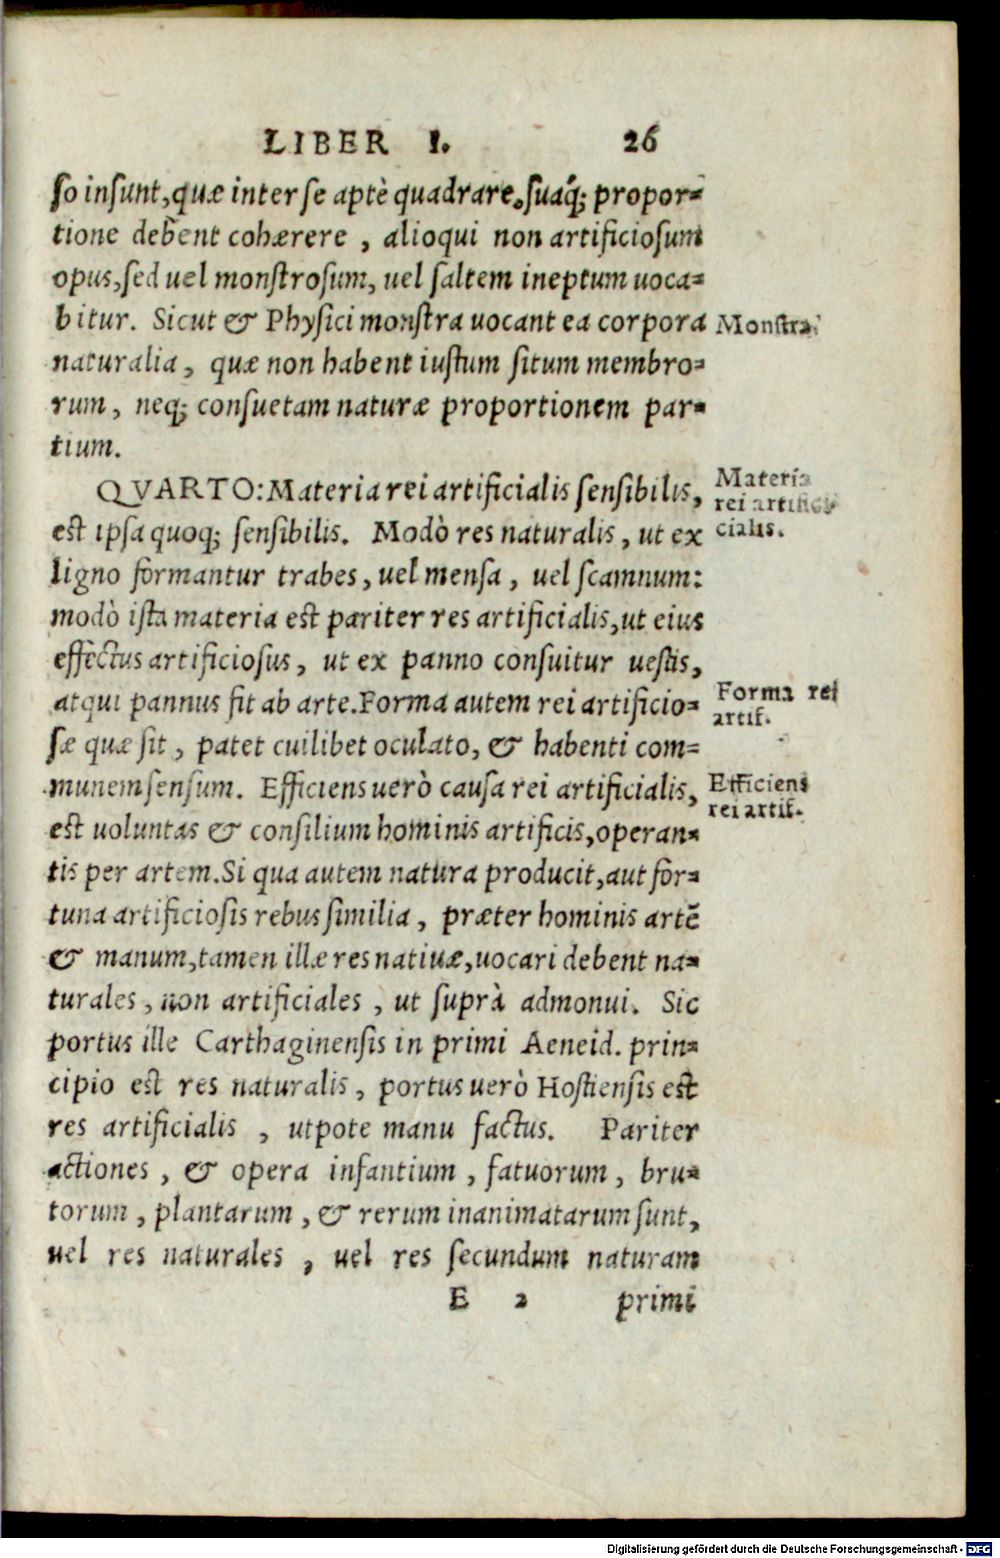 LIBER I. 26
ſo inſunt, quæ inter ſe aptè quadrare. ſuaq́; propor-
tione debent cohærere, alioqui non artificioſum
opus, ſed uel monſtroſum, uel ſaltem ineptum uoca-
bitur. Sicut & Phyſici monſtra uocant ea corpora
Monſtra.
naturalia, quæ non habent iuſtum ſitum membro-
rum, neq; conſuetam naturæ proportionem par-
tium.
QVARTO: Materia rei artificialis ſenſibilis,
Materia
rei artifi-
cialis.
eſt ipſa quoq; ſenſibilis. Modò res naturalis, ut ex
ligno formantur trabes, uel menſa, uel ſcamnum:
modò iſta materia eſt pariter res artificialis, ut eius
effectus artificioſus, ut ex panno conſuitur ueſtis,
atqui pannus fit ab arte. Forma autem rei artificio-
Forma rei
artif.
ſæ quæ ſit, patet cuilibet oculato, & habenti com-
munem ſenſum. Efficiens uerò cauſa rei artificialis,
Efficiens
rei artif.
eſt uoluntas & conſilium hominis artificis, operan-
tis per artem. Si qua autem natura producit, aut for-
tuna artificioſis rebus ſimilia, præter hominis artē
& manum, tamen illæ res natiuæ, uocari debent na-
turales, non artificiales, ut ſuprà admonui. Sic
portus ille Carthaginenſis in primi Aeneid. prin-
cipio eſt res naturalis, portus uerò Hoſtienſis eſt
res artificialis, utpote manu factus. Pariter
actiones, & opera infantium, fatuorum, bru-
torum, plantarum, & rerum inanimatarum ſunt,
uel res naturales, uel res ſecundum naturam
E 2 primi
Digitalisierung gefördert durch die Deutsche Forschungsgemeinschaft - DFG